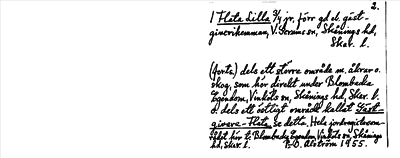 2.
1 Flata Lilla 3/4 jr. förr gd el. gäst-
givarehemman, V. Strans sn, Skånings hd,
Skar. l.
(forts.) dels ett större område m. åkrar o.
skog, som hör direkt under Blombacka
Egendom, Vinköls sn, Skånings hd, Skar. l.
o. dels ett östligt område kallat Gäst-
givare-Flata, se detta. Hela jordregisterom-
rådet hör t. Blombacka Egendom, Vinköls sn, Skånings
hd, Skar. l. P.O. Alström 1955.